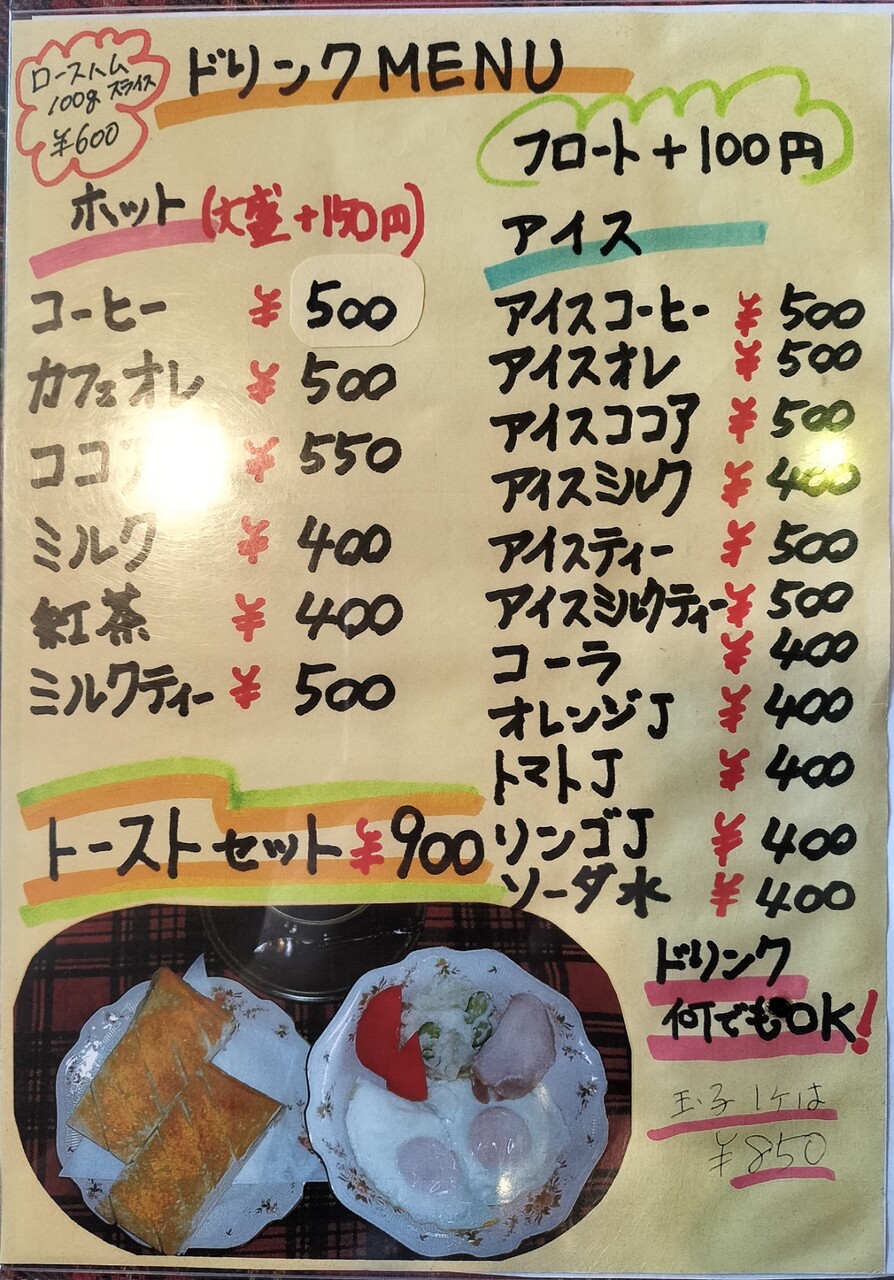 ローストハム
100g スライス
¥600
ドリンクMENU
フロート+100円
ホット(大盛+150円)
コーヒー ¥500
カフェオレ ¥500
ココア ¥550
ミルク ¥400
紅茶 ¥400
ミルクティー ¥500
アイス
アイスコーヒー ¥500
アイスオレ ¥500
アイスココア ¥500
アイスミルク ¥400
アイスティー ¥500
アイスミルクティー ¥500
コーラ ¥400
オレンジJ ¥400
トマトJ ¥400
リンゴJ ¥400
ソーダ水 ¥400
トーストセット¥900
ドリンク
何でもOK!
玉子1ケは
¥850